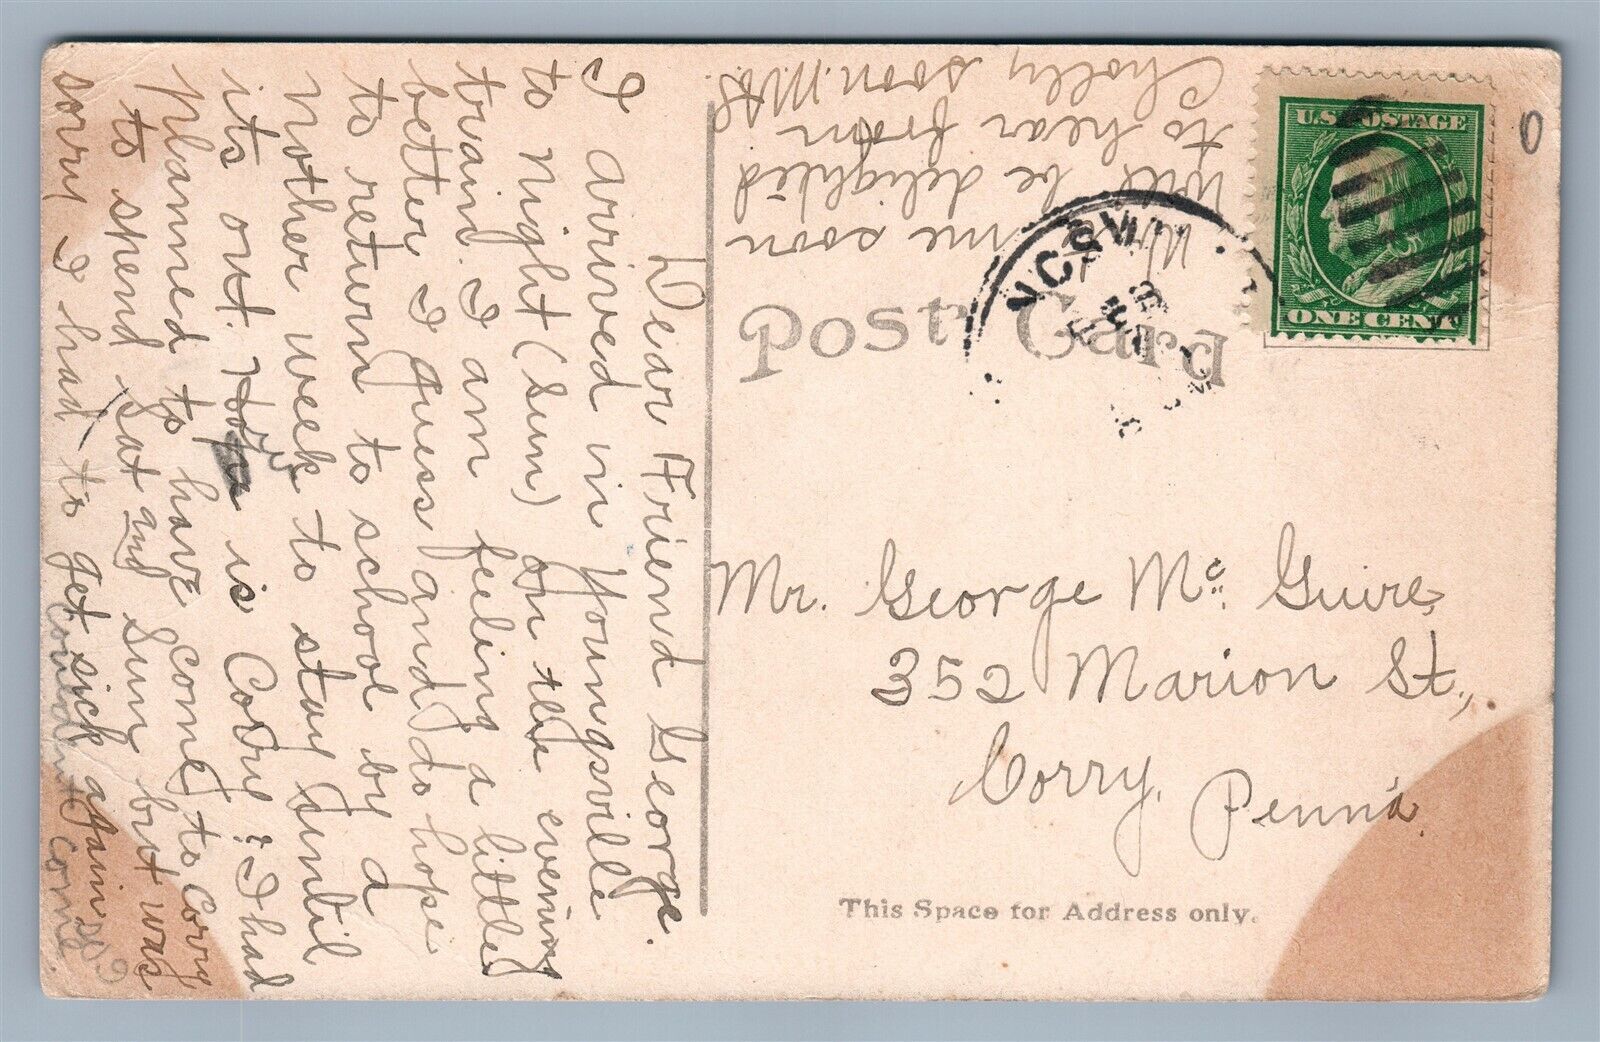 Dear Friend George.
I arrived in Youngsville
to night (Sun) on the evening
train. I am feeling a little
better I guess and do hope
to return to school by a
nother week to stay until
its out. How is Cory? I had
planned to have come to Corry
to spend Sat and Sun but was
sorry I had to get sick again so I
couldn't come.
Write me soon
will be delighted
to hear from
Cholly soon.
Post Card
U.S. POSTAGE
ONE CENT
Mr. George Mc. Guire,
352 Marion St.,
Corry,
Penn'a.
This Space for Address only.
0